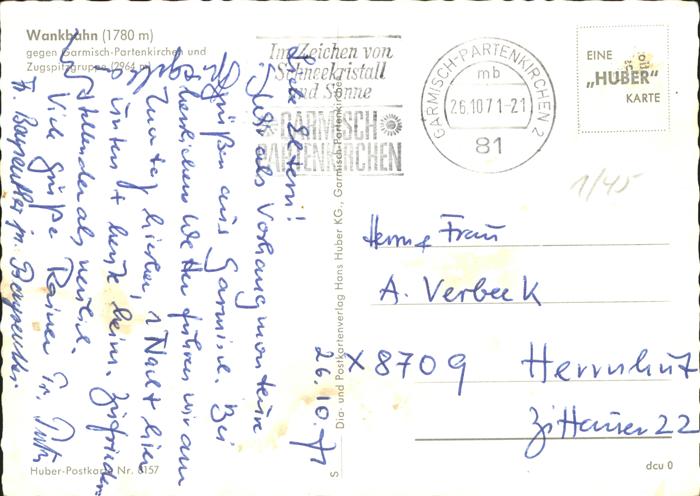 Wankbahn (1780 m)
gegen Garmisch-Partenkirchen und
Zugspitzgruppe (2964 m)
Im Zeichen von
Schneekristall
und Sonne
GARMISCH
PARTENKIRCHEN
GARMISCH-PARTENKIRCHEN 2
mb
26.10.71-21
81
EINE
„HUBER"
KARTE
1/45
26.10.71
Liebe Eltern!
als Vorhangmonteur
grüßen aus Garmisch. Bei
herrlichem Wetter fuhren wir am
Montag hierher, 1 Nacht hier
unten + heute heim. Zufrieden
stellender als neulich.
Viele Grüße Rainer
Fr. Bayreuther jr. Bayreuther.
Herrn & Frau
A. Verbeek
X 8709 Herrnhut
Zittauer 22
Dia- und Postkartenverlag Hans Huber KG., Garmisch-Partenkirchen
S
Huber-Postkarte Nr. 8157
dcu 0